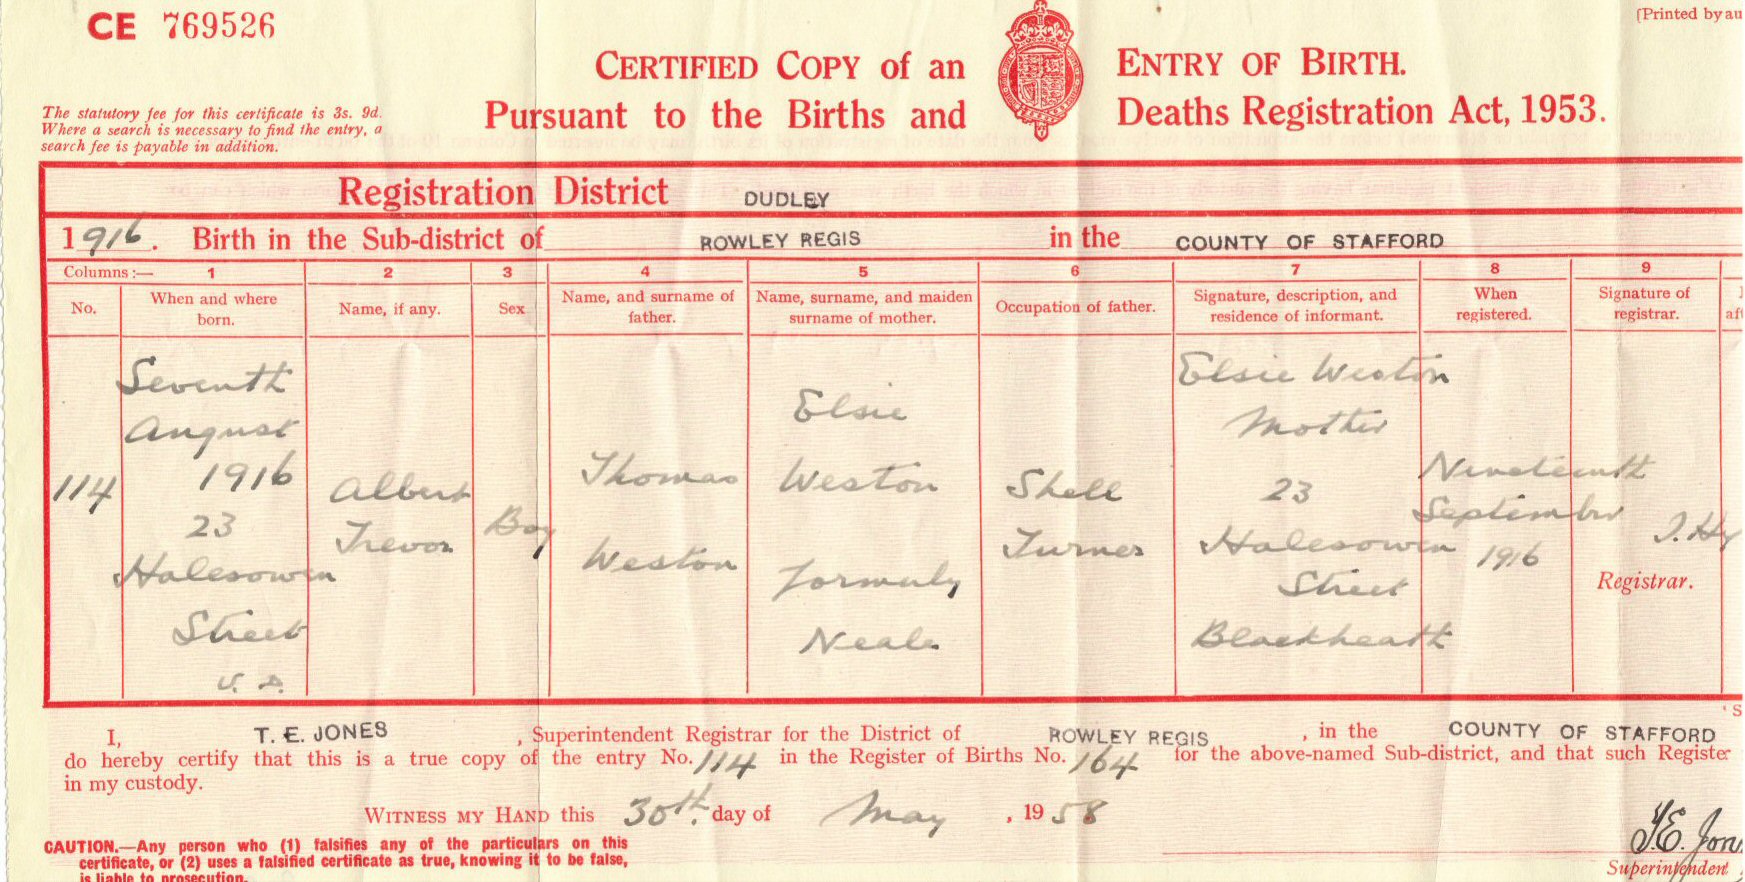 CE 769526
(Printed by au
CERTIFIED COPY of an ENTRY OF BIRTH.
Pursuant to the Births and Deaths Registration Act, 1953.
The statutory fee for this certificate is 3s. 9d.
Where a search is necessary to find the entry, a
search fee is payable in addition.
Registration District DUDLEY
1916. Birth in the Sub-district of ROWLEY REGIS in the COUNTY OF STAFFORD
Columns:— 1 2 3 4 5 6 7 8 9
No.
When and where
born.
Name, if any.
Sex
Name, and surname of
father.
Name, surname, and maiden
surname of mother.
Occupation of father.
Signature, description, and
residence of informant.
When
registered.
Signature of
registrar.
114
Seventh
August
1916
23
Halesowen
Street
Albert
Trevor
Boy
Thomas
Weston
Elsie
Weston
formerly
Neale
Shell
Turner
Elsie Weston
Mother
23
Halesowen
Street
Blackheath
Nineteenth
September
1916
Registrar.
I, T. E. JONES, Superintendent Registrar for the District of ROWLEY REGIS, in the COUNTY OF STAFFORD
do hereby certify that this is a true copy of the entry No. 114 in the Register of Births No. 164 for the above-named Sub-district, and that such Register
in my custody.
WITNESS MY HAND this 30th. day of May, 1958
T.E. Jon
Superintendent
CAUTION.—Any person who (1) falsifies any of the particulars on this
certificate, or (2) uses a falsified certificate as true, knowing it to be false,
is liable to prosecution.